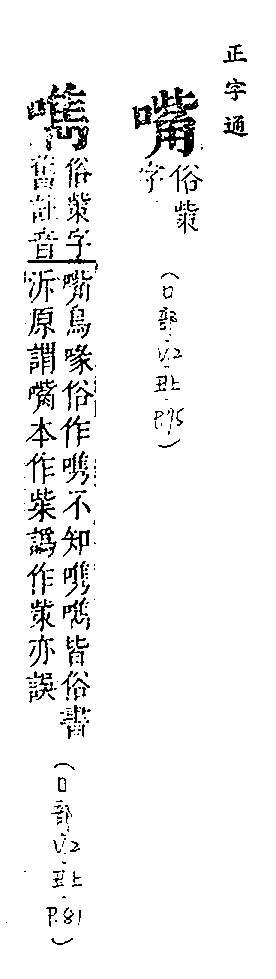 正字通
嘴 俗㭰
字
(口部.V.2.丑上.P.75)
㗱 俗㭰字嘴鳥喙俗作㗱不知㗱㗱皆俗書
舊註音泝原謂嘴本作柴譌作㭰亦誤
(口部.V.2.丑上.P.81)